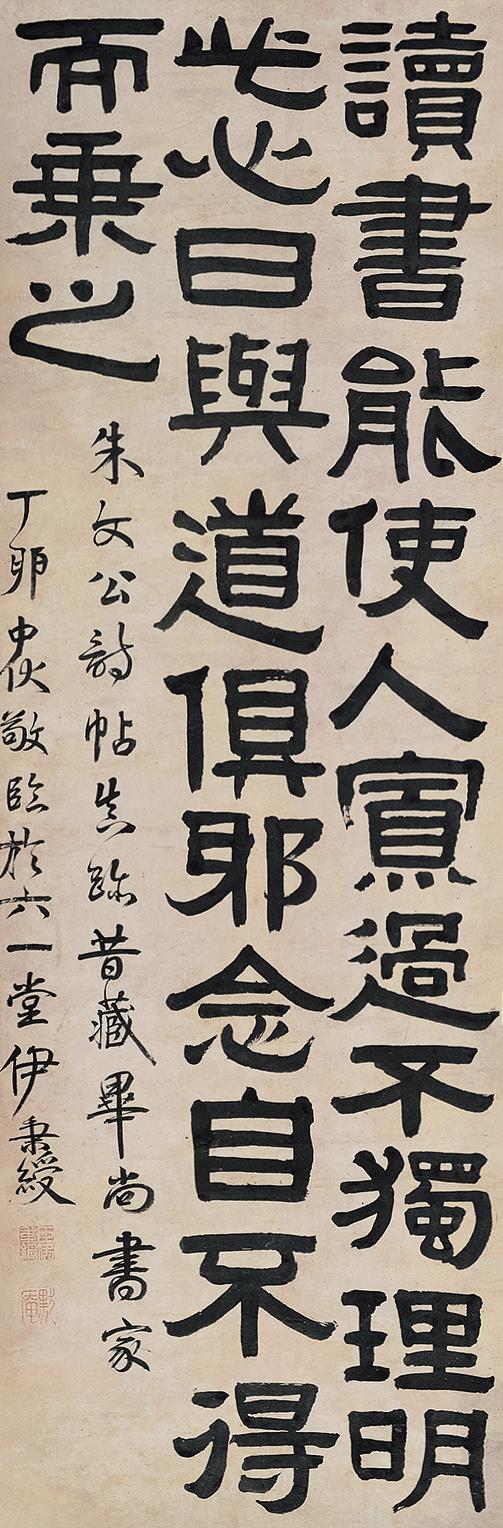 讀書能使人寡過不獨理明
此心日與道俱耶念自不得
而乘之
朱文公詩帖真跡昔藏畢尚書家
丁卯中伏敬臨於六一堂伊秉綬